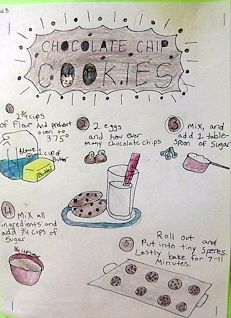 CHOCOLATE CHIP
COOKIES
2 1/4 cups
of Flour And preheat
oven to
375°
1 cup of
butter
2 2 eggs
and how ever
many chocolate chips
3 Mix, and
add 1 table-
spoon of Sugar
4 Mix all
ingredients, and
add 3/4 cups of
Sugar
5 Roll out and
Put into tiny
Lastly bake for 7-11
Minutes.